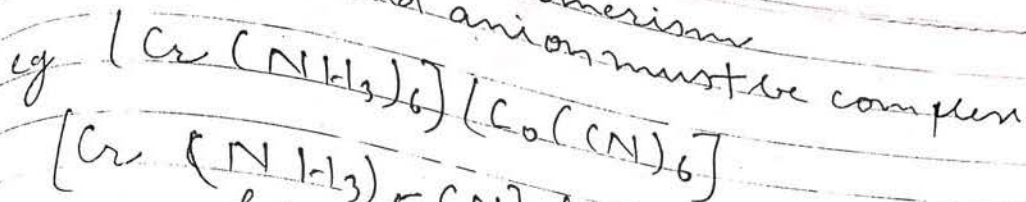 anion must be complex
eg [Cr(NH3)6] [Co(CN)6]
[Cr (NH3)5 CN]